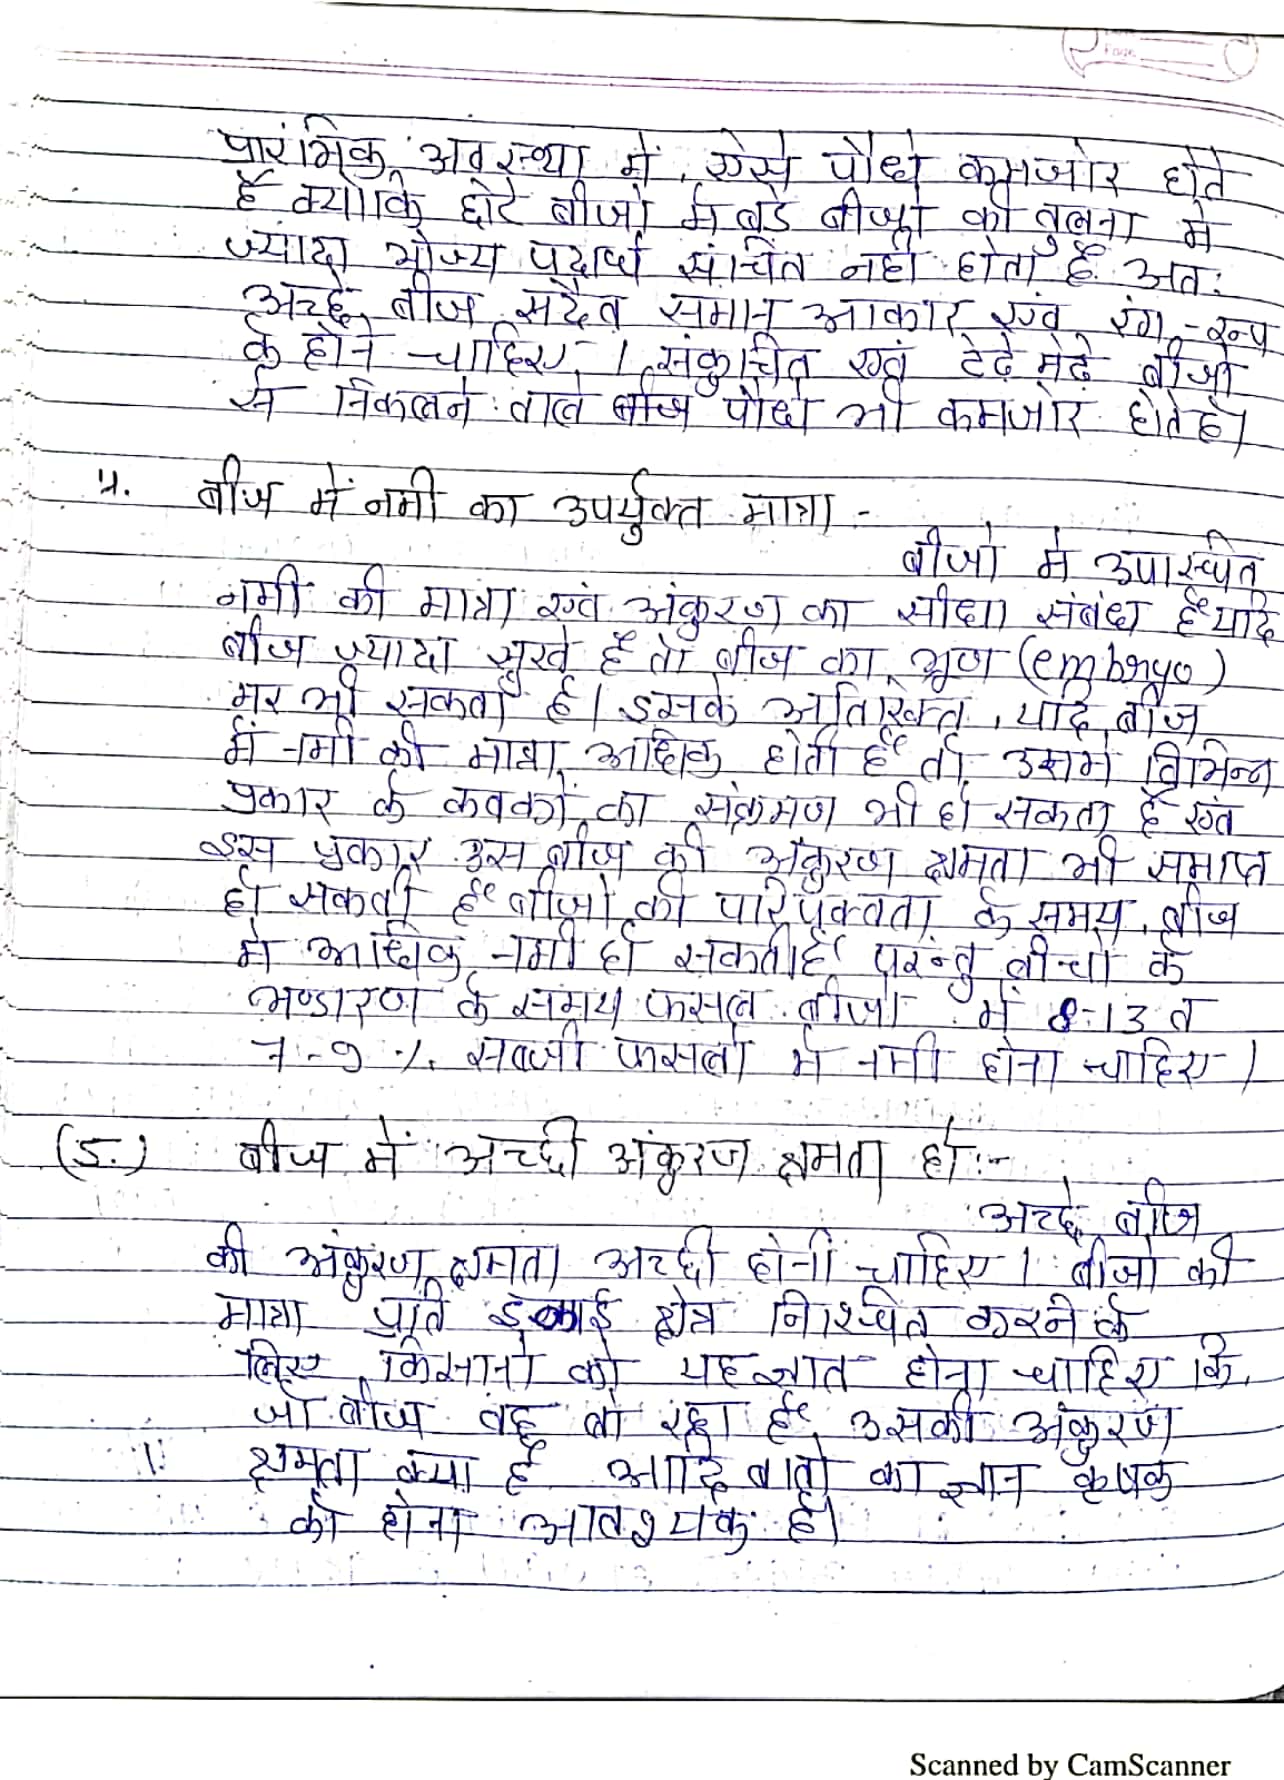 प्रारंभिक अवस्था में, ऐसे पौधे कमजोर होते
हैं क्योकि छोटे बीजो में बडे बीजो की तुलना मे
ज्यादा भोज्य पदार्थ संचित नही होता है अतः
अच्छे बीज सदैव समान आकार एवं रंग-रूप
के होने चाहिए । संकुचित एवं टेढे मेढे बीजो
से निकलने वाले बीज पौधे भी कमजोर होते है।
4. बीज में नमी का उपर्युक्त मात्रा :-
बीजो मे उपास्थित
नमी की मात्रा एवं अंकुरण का सीधा संबंध है यदि
बीज ज्यादा सुखे है तो बीज का भ्रूण (embryo)
मर भी सकता है। इसके अतिरिक्त, यदि बीज
में नमी की मात्रा अधिक होती है तो उसमे विभिन्न
प्रकार के कवको का संक्रमण भी हो सकता है एवं
इस प्रकार उस बीज की अंकुरण क्षमता भी समाप्त
हो सकती है बीजो की परिपक्वता के समय बीज
मे अधिक नमी हो सकती है परन्तु बीचो के
भण्डारण के समय फसल बीजो में 8-13 व
7-9 %. सब्जी फसलो मे नमी होना चाहिए ।
(5.) बीज में अच्छी अंकुरण क्षमता हो :-
अच्छे बीज
की अंकुरण क्षमता अच्छी होनी चाहिए । बीजो की
मात्रा प्रति इकाई क्षेत्र निश्चित करने के
लिए किसानो को यह ज्ञात होना चाहिए कि
जो बीज वह बो रहा है उसकी अंकुरण
क्षमता क्या है आदि बातो का ज्ञान कृषक
को होना आवश्यक है।
Scanned by CamScanner